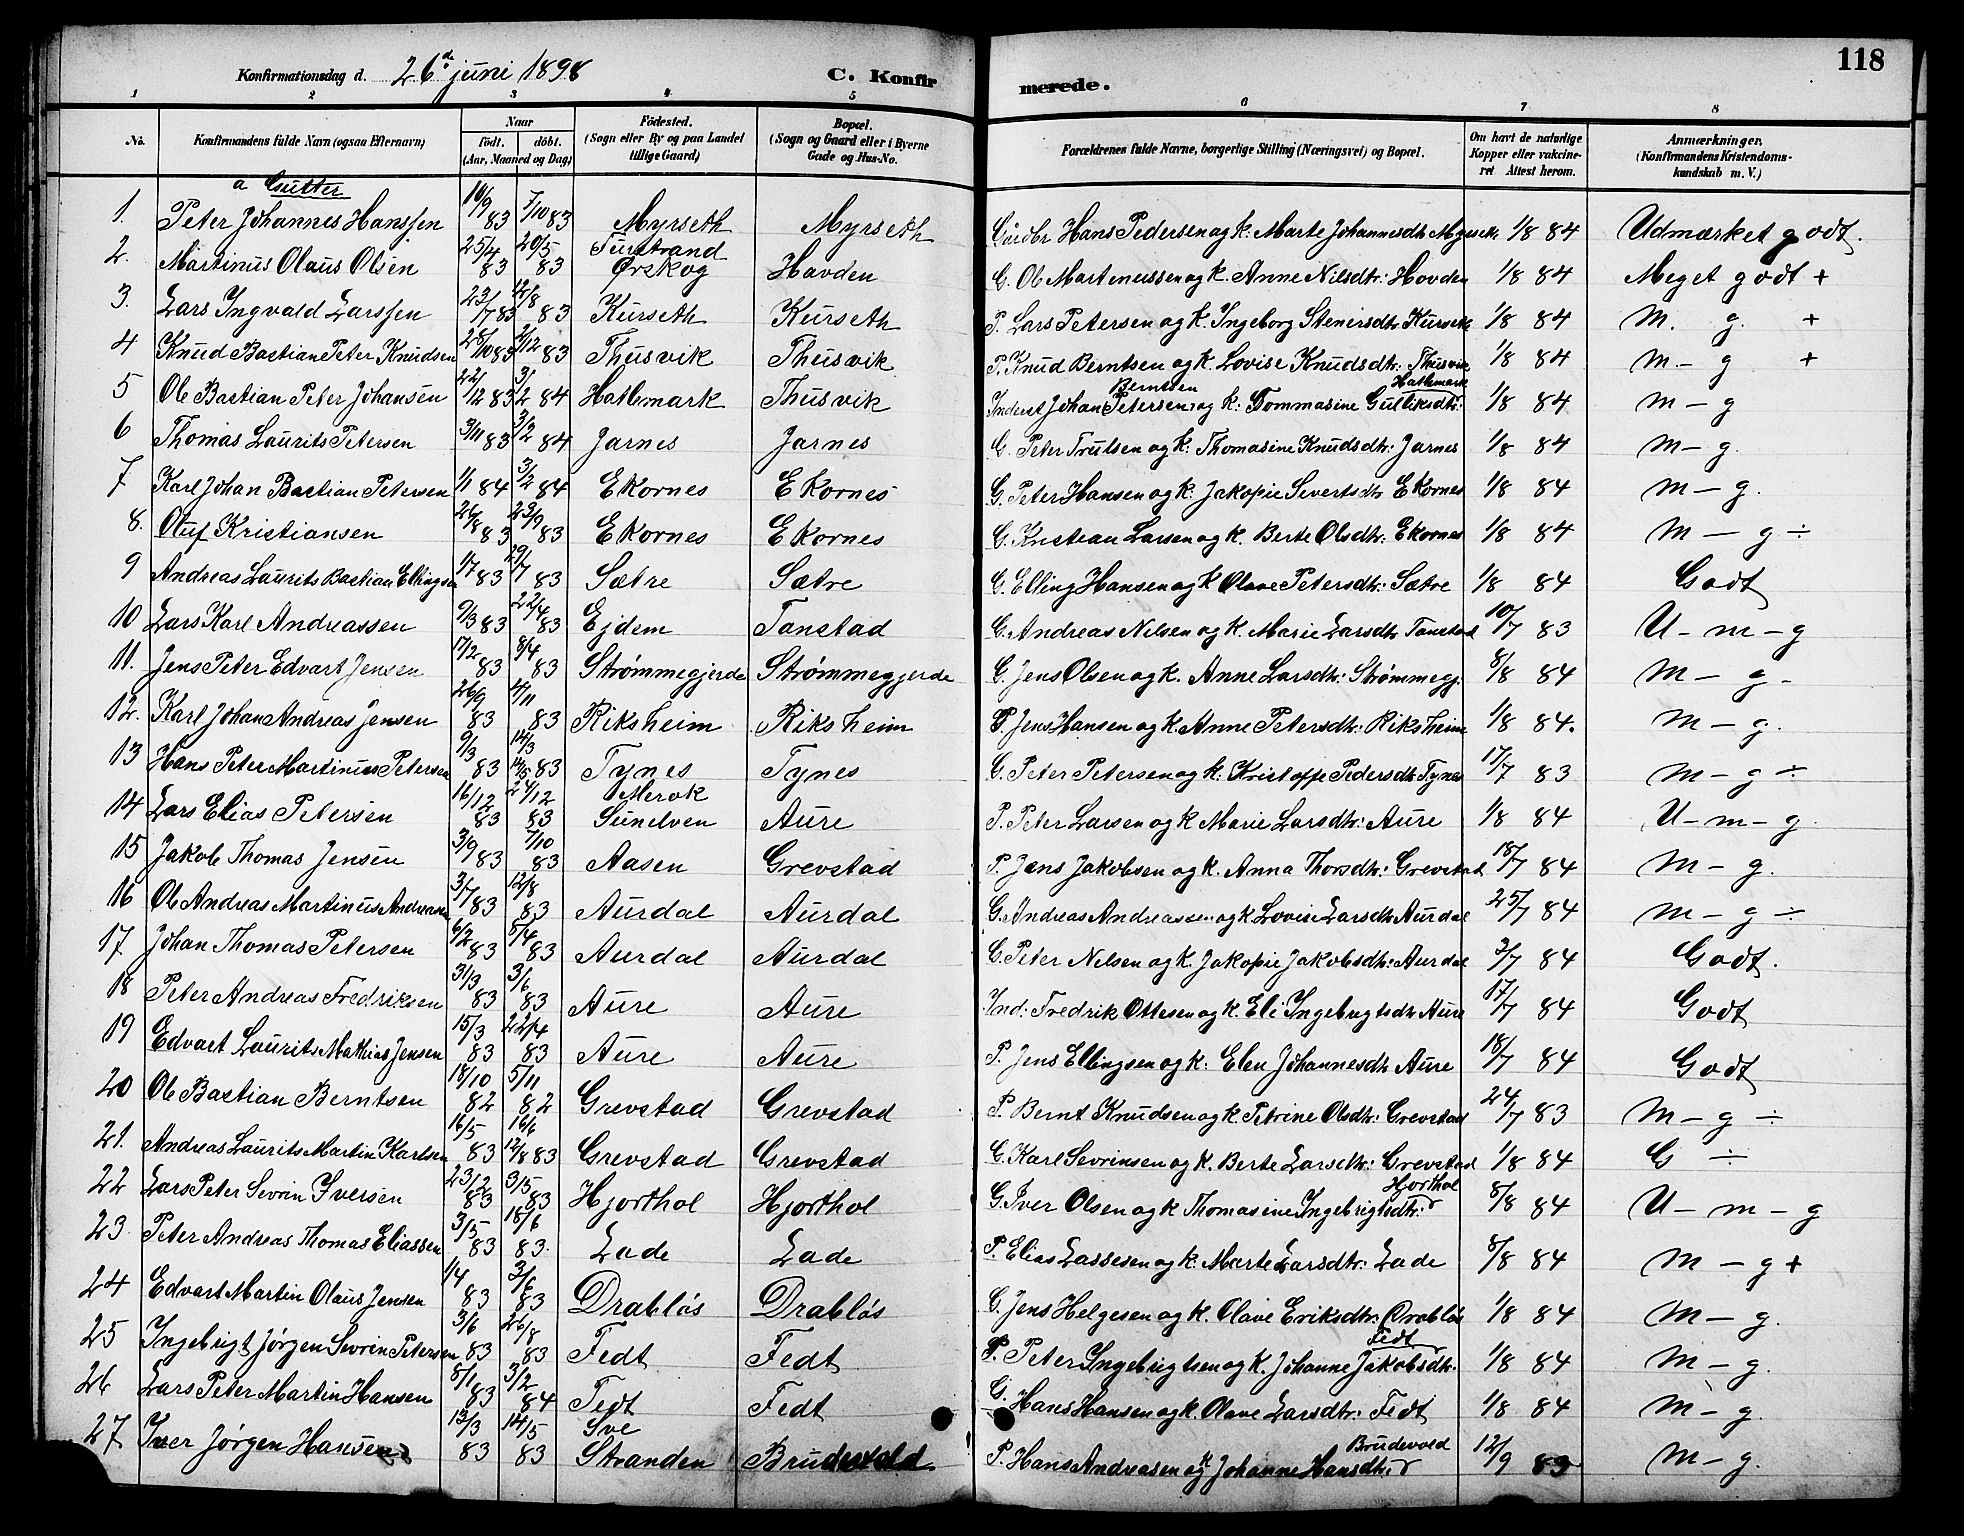 118
Konfirmationsdag d. 26de juni 1898 C. Konfirmerede.
1 2 3 4 5 6 7 8
No. Konfirmandens fulde Navn (ogsaa Efternavn) Naar födt. döbt. (Aar, Maaned og Dag) Födested. (Sogn eller By og paa Landet tillige Gaard) Bopæl. (Sogn og Gaard eller i Byerne Gade og Hus-No. Forældrenes fulde Navne, borgerlige Stilling (Næringsvei) og Bopæl. Om havt de naturlige Kopper eller vakcineret Attest herom. Anmærkninger. (Konfirmandens Kristendomskundskab m. V.)
a Gutter
1. Peter Johannes Hanssen 16/9 83 7/10 83 Myrseth Myrseth Hans Pedersen og k: Marte Johannesdtr Myrseth 1/8 84 Udmærket godt.
2. Martinus Olaus Olsen 25/4 83 20/5 83 Ørskog Hovden G. Ole Martenussen og k. Anne Nilsdtr: Hovden 1/8 84 Meget godt +
3. Lars Ingvald Larssen 23/7 83 12/8 83 Kurseth Kurseth P. Lars Petersen og k. Ingeborg Stenersdtr Kurseth 1/8 84 M. g. +
4 Knud Bastian Peter Knudsen 28/10 83 2/12 83 Thusvik Thusvik P. Knud Berntsen og k. Lovise Knudsdtr: Thusvik 1/8 84 m - g +
5 Ole Bastian Peter Johansen 22/12 83 3/2 84 Hatlemark Thusvik Inderst Johan Berntsen Petersen og k: Tommasine Gulliksdtr: Hatlemark 1/8 84 m - g
6 Thomas Laurits Petersen 3/11 83 3/2 84 Jarnes Jarnes G. Peter Trulsen og k: Thomasine Knudsdtr: Jarnes 1/8 84 m - g.
7 Karl Johan Bastian Petersen 1/1 84 3/2 84 Ekornes Ekornes G. Peter Hansen og k: Jakopie Sivertsdtr Ekornes 1/8 84 m - g.
8. Oluf Kristiansen 26/8 83 23/9 83 Ekornes Ekornes G. Kristian Larsen og k. Berte Olsdtr: Ekornes 1/8 84 m - g ÷
9 Andreas Laurits Bastian Ellingsen 1/7 83 29/7 83 Sætre Sætre G. Elling Hansen og k Olave Petersdtr: Sætre 1/8 84 Godt
10 Lars Karl Andreassen 9/3 83 22/4 83 Ejdem Tanstad G. Andreas Nilsen og k. Marie Larsdtr Tanstad 10/7 83 U - m - g
11. Jens Peter Edvart Jensen 17/2 83 8/4 83 Strømmegjerde Strømmegjerde G. Jens Olsen og k. Anne Larsdtr: Strømmegj. 8/8 84 m - g -
12. Karl Johan Andreas Jensen 26/9 83 4/11 83 Riksheim Riksheim P. Jens Hansen og k. Anne Petersdtr: Riksheim 1/8 84. m - g.
13 Hans Peter Martinus Petersen 9/3 83 14/3 14/5 83 Tynes Tynes G. Peter Petersen og k: Kristoffe Pedersdtr Tynes 17/7 83 m - g ÷
14 Lars Elias Petersen 16/12 83 24/12 83 Merok Sunelven Aure P. Peter Larsen og k Marie Larsdtr: Aure 1/8 84 U - m - g.
15 Jakob Thomas Jensen 3/9 83 7/10 83 Aasen Grevstad P. Jens Jakobsen og k. Anna Thorsdtr: Grevstad 18/7 84 m - g.
16 Ole Andreas Martinus Andreasen 3/7 83 12/8 83 Aurdal Aurdal G. Andreas Andreassen og k Lovise Larsdtr Aurdal 25/7 84 m - g ÷
17. Johan Thomas Petersen 6/2 83 5/4 83 Aurdal Aurdal G. Peter Nilsen og k. Jakopie Jakobsdtr: Aurdal 3/7 84 Godt.
18 Peter Andreas Fredriksen 31/3 83 3/6 83 Aure Aure Ind: Fredrik Ottesen og k. Eli Ingebrigtsdtr Aure 17/7 84 Godt
19 Edvart Laurits Mathias Jensen 15/3 83 22/4 83 Aure Aure P. Jens Ellingsen og k: Elen Johannesdtr Aure 18/7 84 Godt
20 Ole Bastian Berntsen 18/10 82 5/11 82 Grevstad Grevstad P. Bernt Knudsen og k. Petrine Olsdtr: Grevstad 24/7 83 m - g ÷
21. Andreas Laurits Martin Karlsen 16/5 83 16/6 12/8 83 Grevstad Grevstad G. Karl Sevrinsen og k. Berte Larsdtr: Grevstad 1/8 84 G ÷
22 Lars Peter Sevrin Iversen 23/2 83 3/5 83 Hjorthol Hjorthol G. Iver Olsen og k Thomasine Ingebrigtsdtr: Hjorthol 8/8 84 U - m - g
23. Peter Andreas Thomas Eliassen 3/5 83 18/6 83. Lade Lade P. Elias Lassesen og k: Marte Larsdtr: Lade 8/8 84 m - g +
24 Edvart Martin Olaus Jensen 1/4 83 3/6 83 Drabløs Drabløs G. Jens Helgesen og k. Olave Eriksdtr: Drabløs 1/8 84 m - g.
25 Ingebrigt Jørgen Sevrin Petersen 3/6 83 26/8 83 Fedt Fedt P. Peter Ingebrigtsen og k. Johanne Jakobsdtr. Fedt 1/8 84 m - g.
26 Lars Peter Martin Hansen 8/11 83 3/2 84 Fedt Fedt G. Hans Hansen og k. Olave Larsdtr: Fedt 1/8 84 m - g.
27 Iver Jørgen Hansen 13/3 83 14/5 83 Sve Stranden Brudevold P. Hans Andreasen og k Johanne Hansdtr. Brudevold 12/9 m - g.